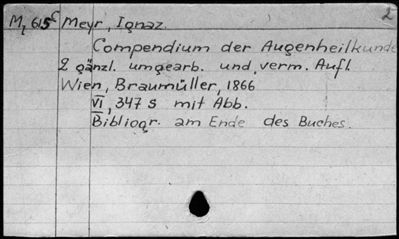 M, 615c Meyr, Ignaz. 2
Compendium der Augenheilkunde
2 gänzl. umgearb. und verm. Aufl.
Wien, Braumüller, 1866
VI, 347 s mit Abb.
Bibliogr. am Ende des Buches.